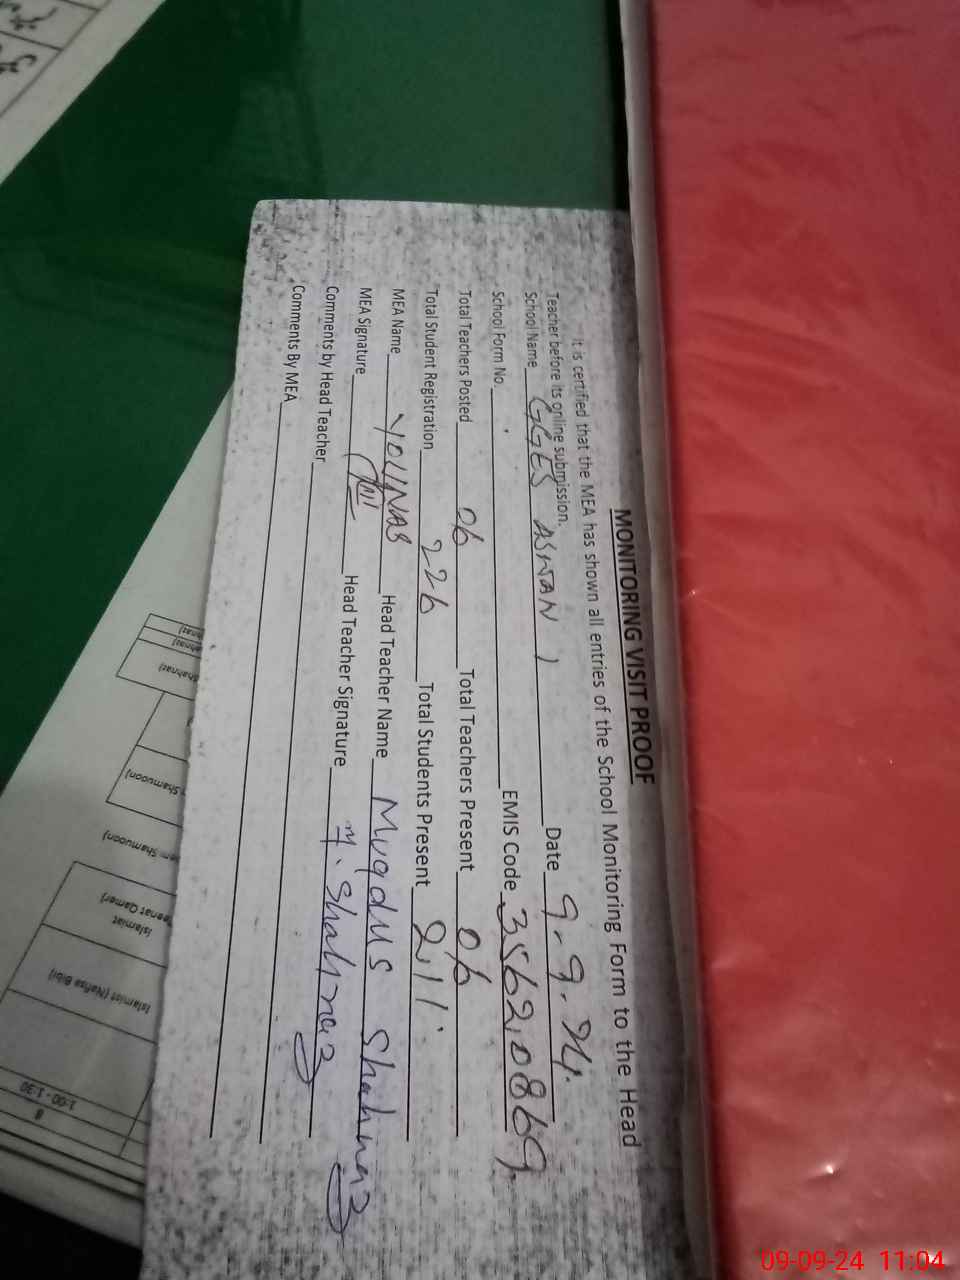 MONITORING VISIT PROOF
It is certified that the MEA has shown all entries of the School Monitoring Form to the Head
Teacher before its online submission.
School Name GGES ASWAN 1 Date 9-9-24.
School Form No. EMIS Code 35620869
Total Teachers Posted 06 Total Teachers Present 06
Total Student Registration 226 Total Students Present 211
MEA Name YOUNAS Head Teacher Name Muqdus Shahnaz
MEA Signature Head Teacher Signature M. Shahnaz
Comments by Head Teacher
Comments By MEA
Shamuoon)
Islamiat
Islamiat (Nafisa Bibi)
1:00 - 1:30
8
09-09-24 11:04